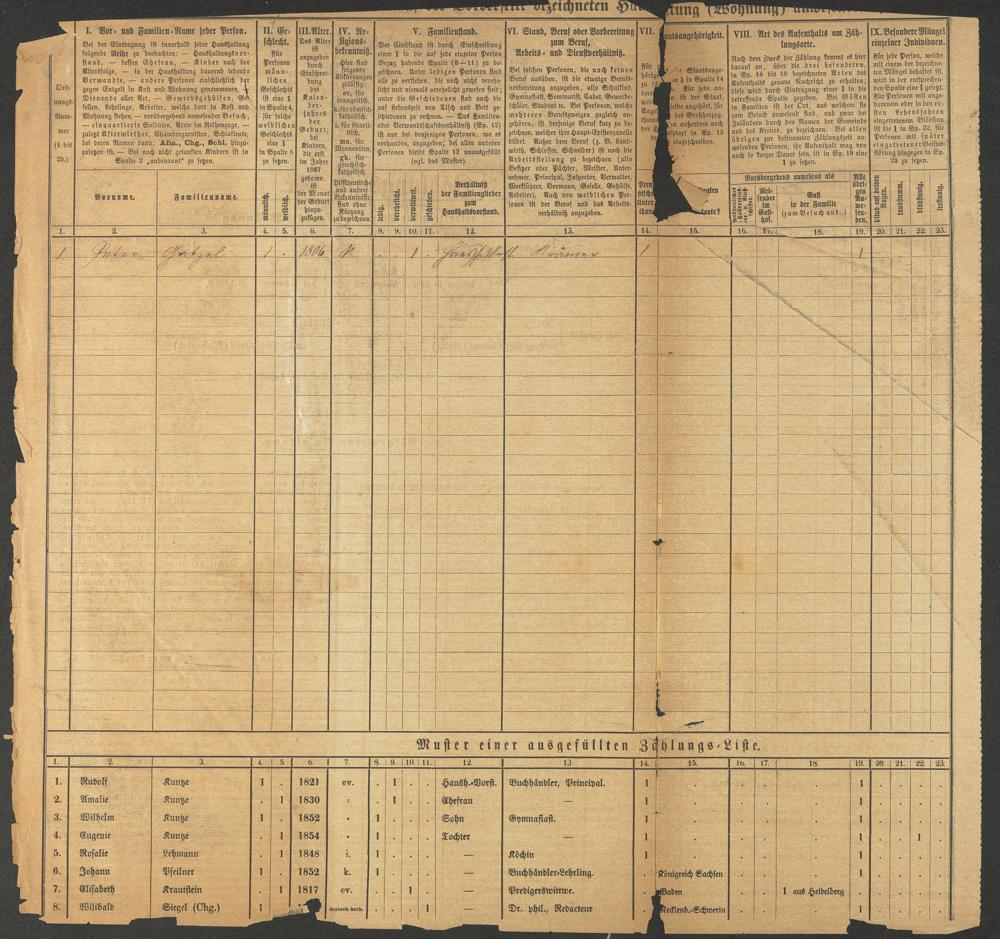 I. Vor- und Familien-Name jeder Person.
Bei der Eintragung ist innerhalb jeder Haushaltung
folgende Reihe zu beobachten: — Haushaltungsvor-
stand, — dessen Ehefrau, — Kinder nach der
Altersfolge, — in der Haushaltung dauernd lebende
Verwandte, — andere Personen einschließlich der
gegen Entgelt in Kost und Wohnung genommenen, —
Dienende aller Art, — Gewerbsgehülfen, Ge-
sellen, Lehrlinge, Arbeiter, welche dort in Kost und
Wohnung stehen, — vorübergehend anwesender Besuch,
— einquartierte Soldaten, Arme im Reihenzuge, —
zuletzt Aftermiether, Chambregarnisten, Schlafleute,
bei deren Namen dann: Afm., Chg., Schl. hinzu-
zusetzen ist. — Bei noch nicht getauften Kindern ist in
Spalte 2 „unbenannt“ zu setzen.
Ord-
nungs-
Num-
mer
(1 bis
25.)
Vorname.
Familienname.
II. Ge-
schlecht.
Für
Personen
männ-
lichen
Geschlechts
ist eine 1
in Spalte 4,
für solche
weiblichen
Geschlechts
eine 1
in Spalte 5
zu setzen.
männlich.
weiblich.
III. Alter.
Das Alter
ist
anzugeben
durch
Einschrei-
bung
des
Kalen-
der-
jahres
der
Geburt;
bei
Kindern,
die erst
im Jahre
1867
geboren,
ist
der Monat
der Geburt
hinzu-
zufügen.
IV. Re-
ligions-
bekenntniß.
Hier sind
folgende
Abkürzungen
zulässig:
ev. für
evangelisch,
k. für römisch-
katholisch,
i. für israeli-
tisch,
mn. für
Mennoniten,
gk. für
griechisch-
katholisch.
Dissidentische
und andere
Bekenntnisse
sind ohne
Kürzung
zu bezeichnen
V. Familienstand.
Der Civilstand ist durch Einschreibung
einer 1 in die auf jede einzelne Person
Bezug habende Spalte (8—11) zu be-
zeichnen. Unter ledigen Personen sind
alle zu verstehen, die noch nicht verehe-
licht und niemals verehelicht gewesen sind;
unter die Geschiedenen sind auch die
auf Lebenszeit von Tisch und Bett ge-
schiedenen zu rechnen. — Das Familien-
oder Verwandtschaftsverhältniß (Sp. 12)
ist nur bei denjenigen Personen, wo es
vorhanden, anzugeben; bei allen anderen
Personen bleibt Spalte 12 unausgefüllt
(vgl. das Muster).
ledig.
verehelicht.
verwittwet.
geschieden.
Verhältniß
der Familienglieder
zum
Haushaltsvorstand.
VI. Stand, Beruf oder Vorbereitung
zum Beruf,
Arbeits- und Dienstverhältniß.
Bei solchen Personen, die noch keinen
Beruf ausüben, ist die etwaige Berufs-
vorbereitung anzugeben, also Schulkind,
Gymnasiast, Seminarist, Cadet, Gewerbe-
schüler, Student ꝛc. Bei Personen, welche
mehreren Berufszweigen zugleich an-
gehören, ist derjenige Beruf kurz zu be-
zeichnen, welcher ihre Haupt-Existenzquelle
bildet. Außer dem Beruf (z. B. Land-
wirth, Schlosser, Schneider) ist noch die
Arbeitsstellung zu bezeichnen (also
Besitzer oder Pächter, Meister, Unter-
nehmer, Principal, Inspector, Verwalter,
Werkführer, Vormann, Geselle, Gehülfe,
Arbeiter). Auch von weiblichen Per-
sonen ist der Beruf und das Arbeits-
verhältniß anzugeben.
VII.
aatsangehörigkeit.
VIII. Art des Aufenthalts am Zäh-
lungsorte.
Nach dem Zweck der Zählung kommt es hier
darauf an, über die drei besonderen,
in Sp. 16 bis 18 bezeichneten Arten des
Aufenthalts genaue Nachricht zu erhalten;
diese wird durch Eintragung einer 1 in die
betreffende Spalte gegeben. Bei Gästen
in Familien ist der Ort, aus welchem sie
zum Besuch anwesend sind, und zwar bei
Inländern durch den Namen der Gemeinde
und des Kreises, zu bezeichnen. Bei allen
übrigen zur bestimmten Zählungszeit an-
wesenden Personen, ihr Aufenthalt mag von
noch so kurzer Dauer sein, ist in Sp. 19 eine
1 zu setzen.
Vorübergehend anwesend als
Rei-
sender
im
Gast-
hof.
Gast
in der Familie
(zum Besuch aus..)
Alle
übri-
gen
An-
wesen-
den.
IX. Besondere Mängel
einzelner Individuen.
Für jede Person, welche
mit einem der bezeichne-
ten Mängel behaftet ist,
wird in der entsprechen-
den Spalte eine 1 gesetzt.
Für Personen mit ange-
borenem oder in den er-
sten Lebensjahren
eingetretenem Blödsinn,
ist die 1 in Sp. 22, für
Personen mit später
eingetretener Geistes-
störung hingegen in Sp.
23 zu setzen.
blind auf beiden Augen.
taubstumm.
blödsinnig.
irrsinnig.
1. 2. 3. 4. 5. 6. 7. 8. 9. 10. 11. 12. 13. 14. 15. 16. 17. 18. 19. 20. 21. 22. 23.
1 Peter 1 . 1806 . . 1 . Krämer 1 1
Muster einer ausgefüllten Zählungs-Liste.
1. 2. 3. 4. 5. 6. 7. 8. 9. 10. 11. 12. 13 14. 15. 16. 17. 18. 19. 20. 21. 22. 23.
1. Rudolf Kuntze 1 . 1821 ev. . 1 . . Haush.-Vorst. Buchhändler, Principal. 1 . . . . 1 . . . .
2. Amalie Kuntze . 1 1830 . 1 . . Ehefrau — 1 . . . . 1 . . . .
3. Wilhelm Kuntze 1 . 1852 1 . . . Sohn Gymnasiast. 1 . . . . 1 . . . .
4. Eugenie Kuntze . 1 1854 1 . . . Tochter — 1 . . . . 1 . . 1 .
5. Rosalie Lehmann . 1 1848 i. 1 . . . — Köchin 1 . . . . 1 . . . .
6. Johann Pfeilner 1 . 1852 k. 1 . . . — Buchhändler-Lehrling. . Königreich Sachsen . . . 1 . . . .
7. Elisabeth Krautstein . 1 1817 ev. . . 1 . — Predigerswittwe. . Baden . . 1 aus Heidelberg . . . . .
8. Wilibald Siegel (Chg.) 1 deutsch-kath. . . . 1 — Dr. phil., Redacteur . Mecklenb.-Schwerin . . . 1 . . . .